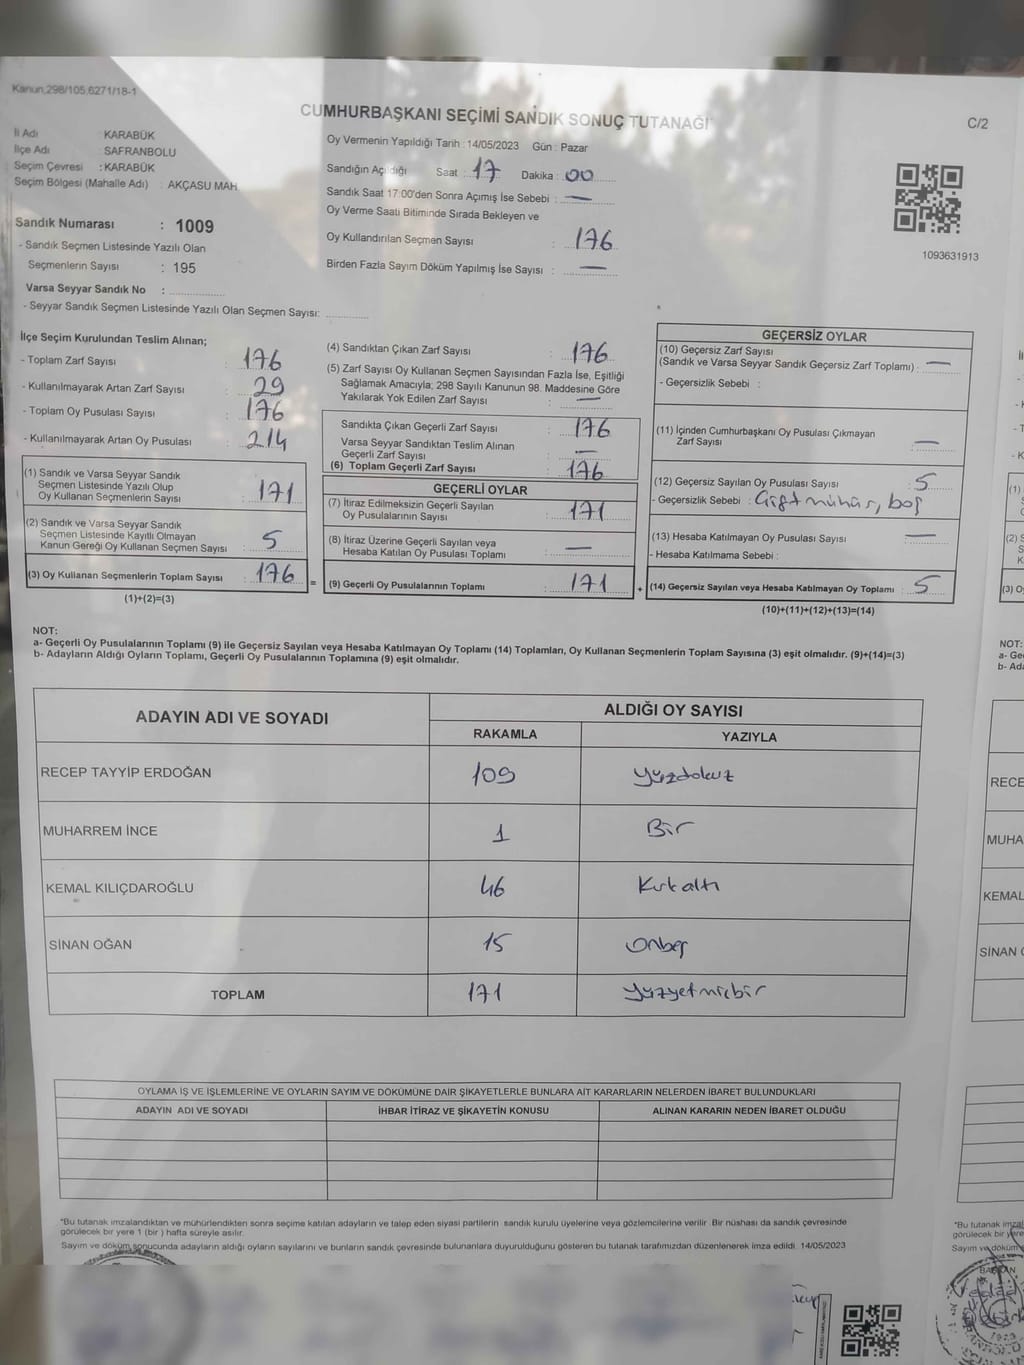 Kanun,298/105,6271/18-1
CUMHURBAŞKANI SEÇİMİ SANDIK SONUÇ TUTANAĞI
C/2
İl Adı : KARABÜK
İlçe Adı : SAFRANBOLU
Seçim Çevresi : KARABÜK
Seçim Bölgesi (Mahalle Adı) : AKÇASU MAH.
Sandık Numarası : 1009
- Sandık Seçmen Listesinde Yazılı Olan
Seçmenlerin Sayısı : 195
Varsa Seyyar Sandık No :
- Seyyar Sandık Seçmen Listesinde Yazılı Olan Seçmen Sayısı:
Oy Vermenin Yapıldığı Tarih : 14/05/2023 Gün : Pazar
Sandığın Açıldığı Saat : 17 Dakika : 00
Sandık Saat 17.00'den Sonra Açımış İse Sebebi : —
Oy Verme Saati Bitiminde Sırada Bekleyen ve
Oy Kullandırılan Seçmen Sayısı : 176
Birden Fazla Sayım Döküm Yapılmış İse Sayısı : —
1093631913
İlçe Seçim Kurulundan Teslim Alınan;
- Toplam Zarf Sayısı : 176
- Kullanılmayarak Artan Zarf Sayısı : 29
- Toplam Oy Pusulası Sayısı : 176
- Kullanılmayarak Artan Oy Pusulası : 214
(1) Sandık ve Varsa Seyyar Sandık
Seçmen Listesinde Yazılı Olup
Oy Kullanan Seçmenlerin Sayısı : 171
(2) Sandık ve Varsa Seyyar Sandık
Seçmen Listesinde Kayıtlı Olmayan
Kanun Gereği Oy Kullanan Seçmen Sayısı : 5
(3) Oy Kullanan Seçmenlerin Toplam Sayısı : 176
(1)+(2)=(3)
=
(4) Sandıktan Çıkan Zarf Sayısı : 176
(5) Zarf Sayısı Oy Kullanan Seçmen Sayısından Fazla İse, Eşitliği
Sağlamak Amacıyla; 298 Sayılı Kanunun 98. Maddesine Göre
Yakılarak Yok Edilen Zarf Sayısı : —
Sandıkta Çıkan Geçerli Zarf Sayısı : 176
Varsa Seyyar Sandıktan Teslim Alınan
Geçerli Zarf Sayısı : —
(6) Toplam Geçerli Zarf Sayısı : 176
GEÇERLİ OYLAR
(7) İtiraz Edilmeksizin Geçerli Sayılan
Oy Pusulalarının Sayısı : 171
(8) İtiraz Üzerine Geçerli Sayılan veya
Hesaba Katılan Oy Pusulası Toplamı : —
(9) Geçerli Oy Pusulalarının Toplamı : 171
+
GEÇERSİZ OYLAR
(10) Geçersiz Zarf Sayısı
(Sandık ve Varsa Seyyar Sandık Geçersiz Zarf Toplamı) : —
- Geçersizlik Sebebi :
(11) İçinden Cumhurbaşkanı Oy Pusulası Çıkmayan
Zarf Sayısı : —
(12) Geçersiz Sayılan Oy Pusulası Sayısı : 5
- Geçersizlik Sebebi : Çift mühür, boş
(13) Hesaba Katılmayan Oy Pusulası Sayısı : —
- Hesaba Katılmama Sebebi :
(14) Geçersiz Sayılan veya Hesaba Katılmayan Oy Toplamı : 5
(10)+(11)+(12)+(13)=(14)
NOT:
a- Geçerli Oy Pusulalarının Toplamı (9) ile Geçersiz Sayılan veya Hesaba Katılmayan Oy Toplamı (14) Toplamları, Oy Kullanan Seçmenlerin Toplam Sayısına (3) eşit olmalıdır. (9)+(14)=(3)
b- Adayların Aldığı Oyların Toplamı, Geçerli Oy Pusulalarının Toplamına (9) eşit olmalıdır.
ADAYIN ADI VE SOYADI
ALDIĞI OY SAYISI
RAKAMLA YAZIYLA
RECEP TAYYİP ERDOĞAN 109 Yüzdokuz
MUHARREM İNCE 1 Bir
KEMAL KILIÇDAROĞLU 46 Kırkaltı
SİNAN OĞAN 15 Onbeş
TOPLAM 171 Yüzyetmişbir
OYLAMA İŞ VE İŞLEMLERİNE VE OYLARIN SAYIM VE DÖKÜMÜNE DAİR ŞİKAYETLERLE BUNLARA AİT KARARLARIN NELERDEN İBARET BULUNDUKLARI
ADAYIN ADI VE SOYADI İHBAR İTİRAZ VE ŞİKAYETİN KONUSU ALINAN KARARIN NEDEN İBARET OLDUĞU
*Bu tutanak imzalandıktan ve mühürlendikten sonra seçime katılan adayların ve talep eden siyasi partilerin sandık kurulu üyelerine veya gözlemcilerine verilir. Bir nüshası da sandık çevresinde
görülecek bir yere 1 (bir ) hafta süreyle asılır.
Sayım ve döküm sonucunda adayların aldığı oyların sayılarını ve bunların sandık çevresinde bulunanlara duyurulduğunu gösteren bu tutanak tarafımızdan düzenlenerek imza edildi. 14/05/2023
NOT:
a- Ge
b- Ada
RECE
MUHA
KEMAL
SİNAN
*Bu tutanak imzal
görülecek bir yere
Sayım ve döküm
BAŞKAN